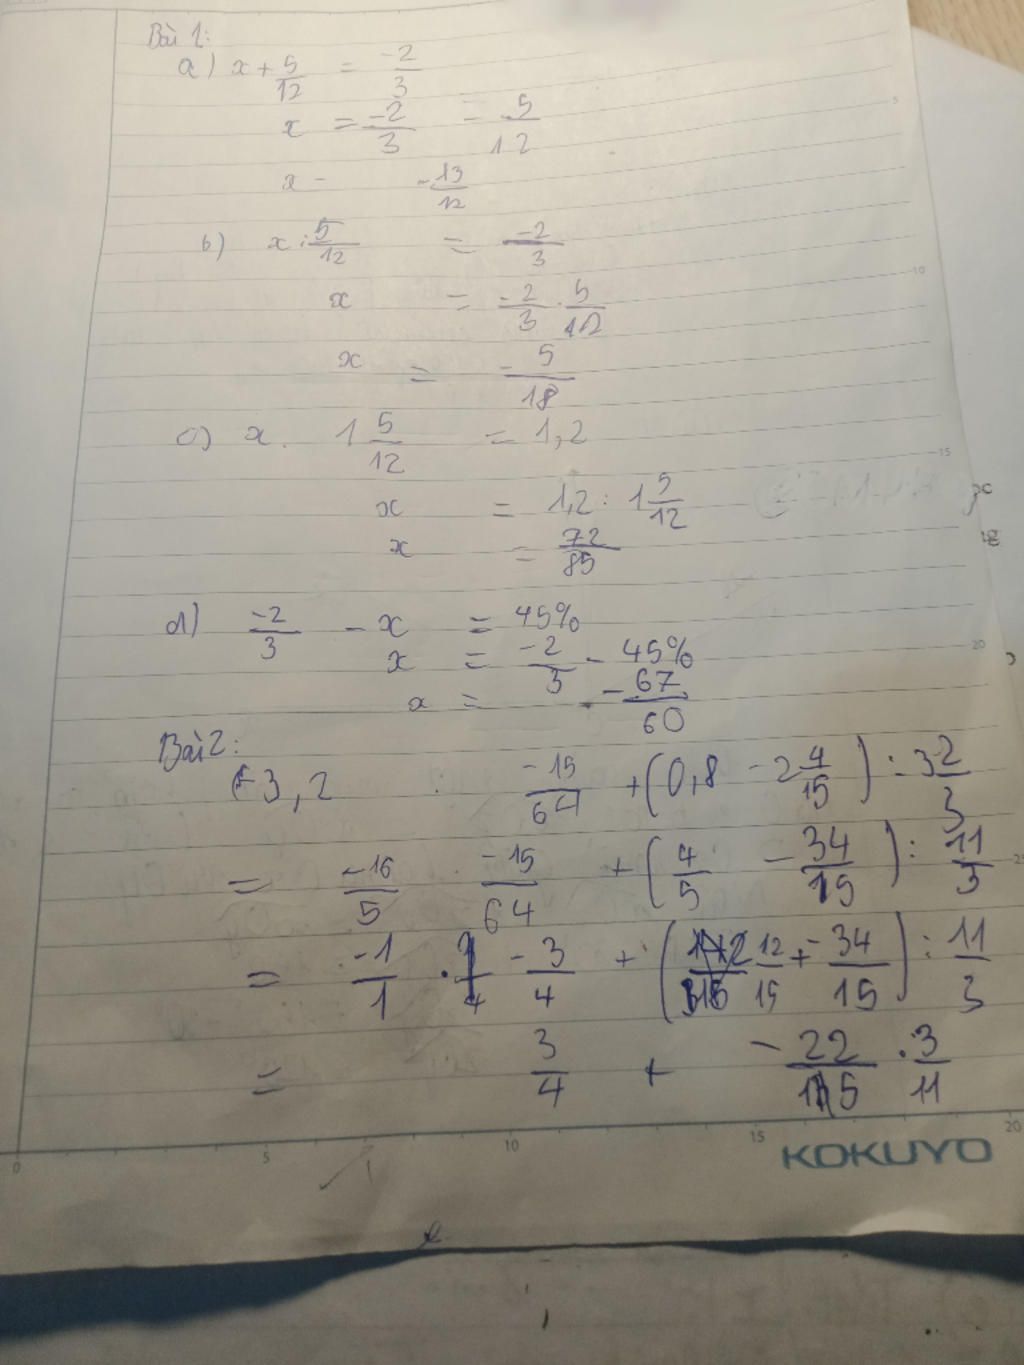 Bài 1:
a) x + 5/12 = -2/3
x = -2/3 = 5/12
x - -13/12
b) x : 5/12 = -2/3
x = -2/3 . 5/12
x = -5/18
c) x . 1 5/12 = 1,2
x = 1,2 : 1 5/12
x = 72/85
d) -2/3 - x = 45%
x = -2/3 - 45%
x = -67/60
Bài 2:
(-3,2 . -15/64 + (0,8 - 2 4/15) : 3 2/3
= -16/5 . -15/64 + (4/5 - 34/15) : 11/3
= -1/1 . -3/4 + (12/15 + -34/15) : 11/3
= 3/4 + -22/15 . 3/11
0 5 10 15 20
KOKUYO